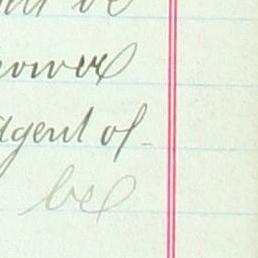 be
power
agent of
be